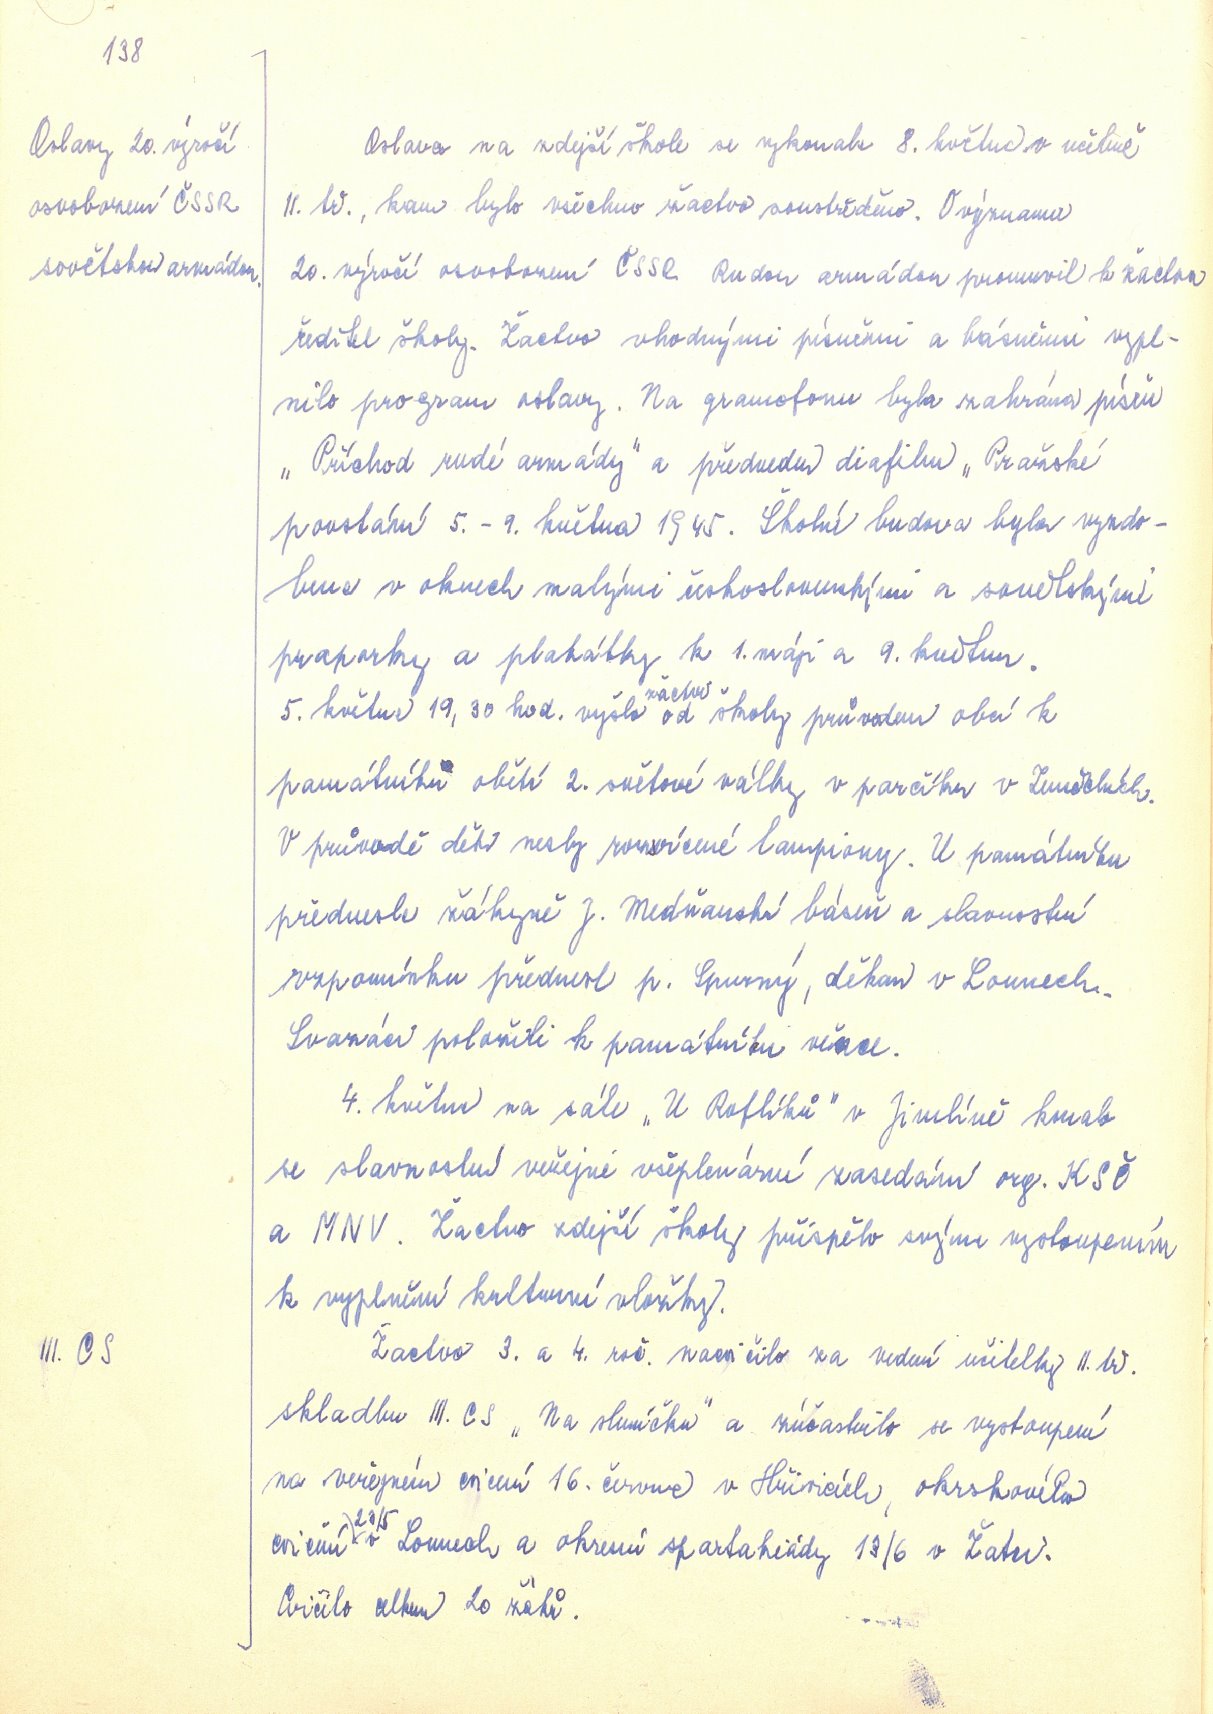 138
Oslavy 20. výročí
osvobození ČSSR
sovětskou armádou.
Oslava na zdejší škole se vykonala 8. května v učebně
II. tř., kam bylo všechno žactvo soustředěno. O významu
20. výročí osvobození ČSSR Rudou armádou promluvil k žactvu
ředitel školy. Žactvo vhodnými písněmi a básněmi vypl-
nilo program oslavy. Na gramofonu byla zahrána píseň
„Příchod rudé armády" a předveden diafilm „Pražské
povstání 5. - 9. května 1945. Školní budova byla vyzdo-
bena v oknech malými československými a sovětskými
praporky a plakátky k 1. máji a 9. květnu.
5. května 19,30 hod. vyšlo žactvo od školy průvodem obcí k
památníku obětí 2. světové války v parčíku v Zeměchách.
V průvodě děti nesly rozsvícené lampiony. U památníku
přednesla žákyně J. Medňanská báseň a slavnostní
vzpomínku přednesl p. Spurný, děkan v Lounech.
Svazáci položili k památníku věnce.
4. května na sále „U Roflíků" v Jimlíně konalo
se slavnostní veřejné všeplenární zasedání org. KSČ
a MNV. Žactvo zdejší školy přispělo svým vystoupením
k vyplnění kulturní vložky.
III. CS
Žactvo 3. a 4. roč. nacvičilo za vedení učitelky II. tř.
skladbu III. CS „Na sluníčku" a zúčastnilo se vystoupení
na veřejném cvičení 16. června v Hřivicích, okrskového
cvičení 23/5 v Lounech a okresní spartakiády 13/6 v Žatci.
Cvičilo celkem 20 žáků.